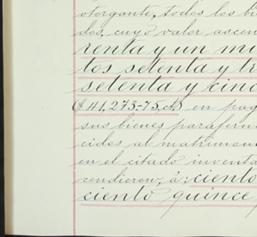 otorgante, todos los bi
dos, cuyo valor ascen
renta y un mi
tos setenta y tr
setenta y cinc
($41,273-75 cs) en pag
sus bienes parafern
cidos al matrimon
en el citado inventa
cendieron, á: ciento
ciento quince